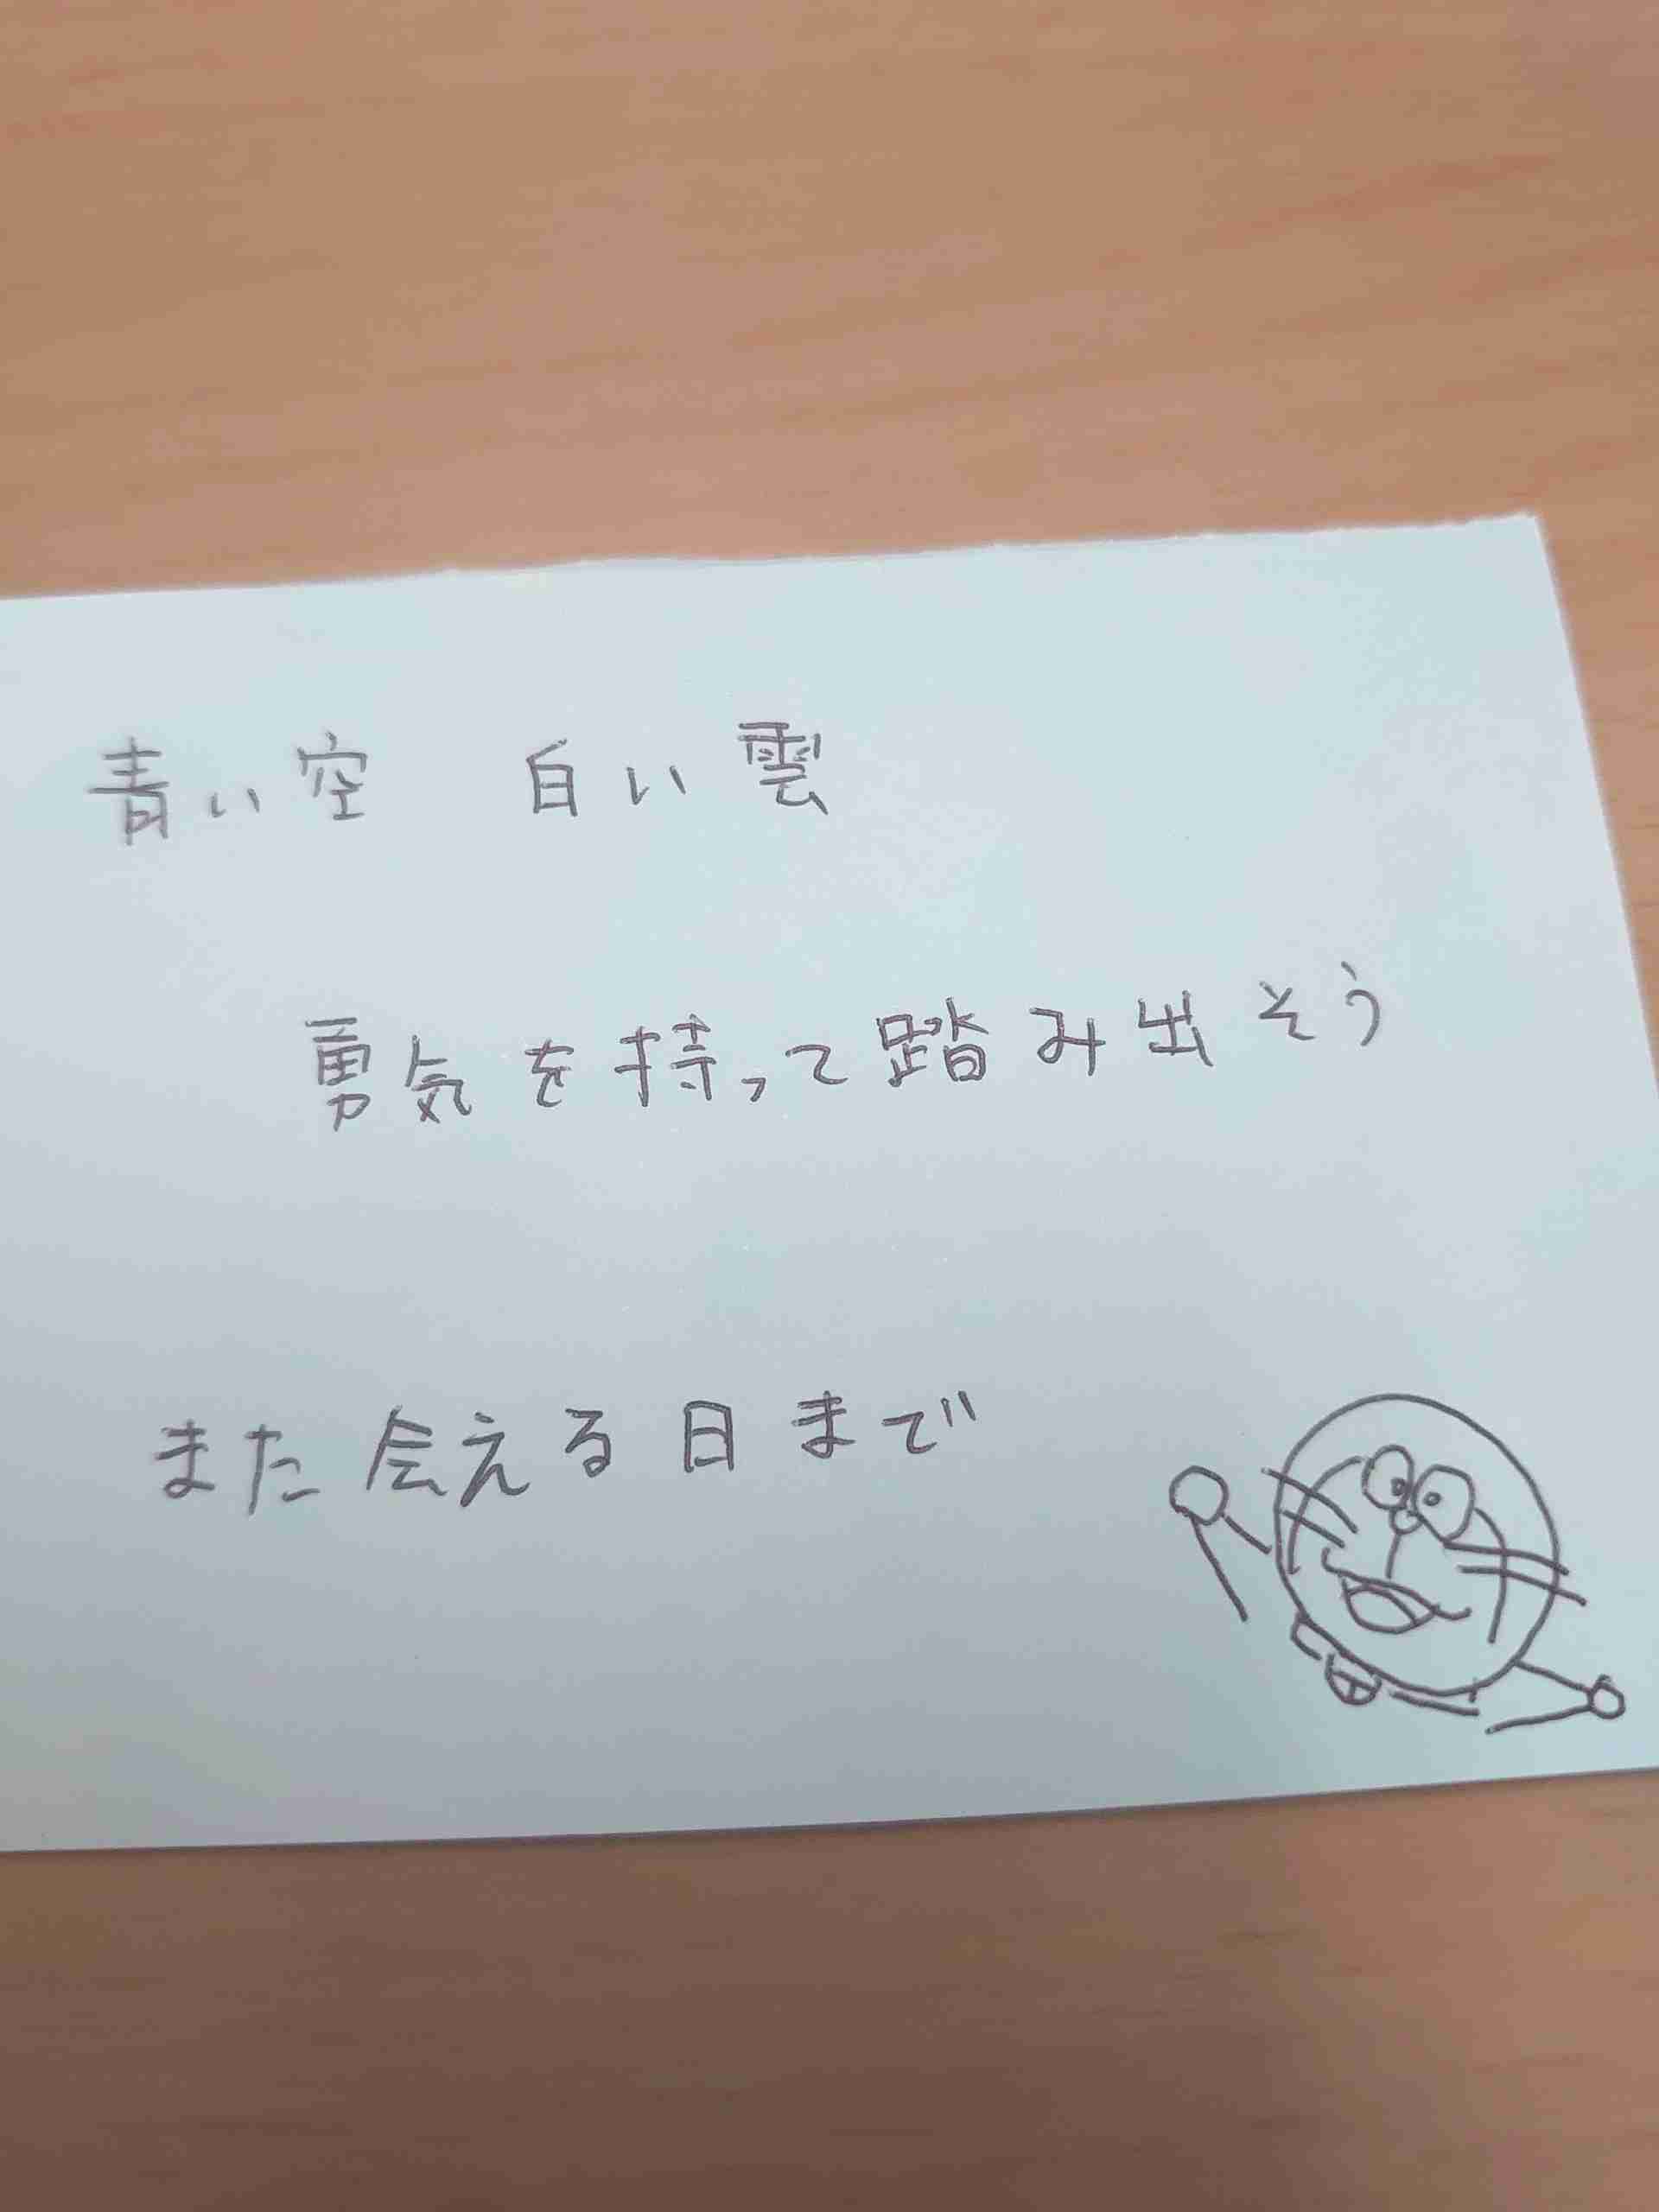 青い空　白い雲
勇気を持って踏み出そう
また会える日まで